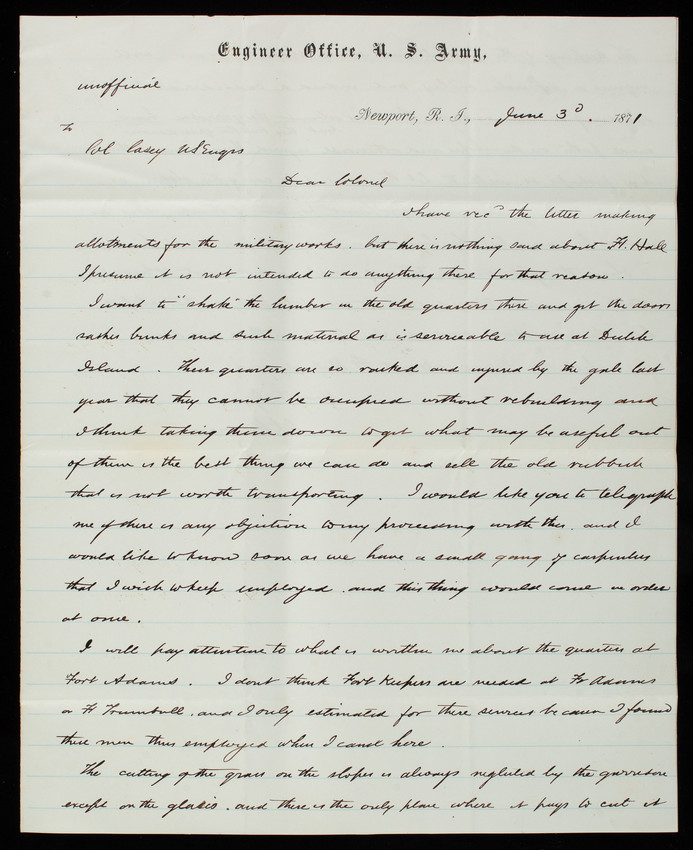 Engineer Office, U. S. Army,
unofficial
Newport, R. I., June 3d. 1871
To
Col Casey US Engrs
Dear Colonel
I have recd the letter making
allotments for the military works. but there is nothing said about Ft. Hale
I presume it is not intended to do anything there for that reason.
I want to "shake" the lumber in the old quarters there and get the doors
sashes bunks and such material as is serviceable to use at Dutch
Island. These quarters are so racked and injured by the gale last
year that they cannot be occupied without rebuilding and
I think taking them down to get what may be useful out
of them is the best thing we can do and sell the old rubbish
that is not worth transporting. I would like you to telegraph
me if there is any objection to my proceeding with this. and I
would like to know soon as we have a small gang of carpenters
that I wish to keep employed. and this thing would come in order
at once.
I will pay attention to what is written me about the quarters at
Fort Adams. I dont think Fort Keepers are needed at Ft Adams
or Ft Trumbull. and I only estimated for these services because I found
these men thus employed when I came here.
The cutting of the grass on the slopes is always neglected by the garrison
except on the glacis. and there is the only place where it pays to cut it